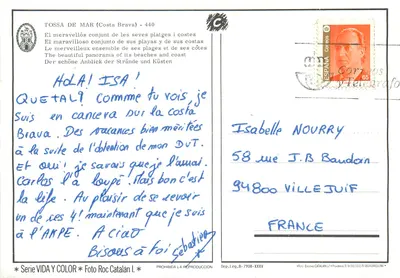 TOSSA DE MAR (Costa Brava) - 460
El meravellós conjunt de les seves platges i costes
El maravilloso conjunto de sus playas y de sus costas
Le merveilleux ensemble de ses plages et de ses côtes
The beautiful panorama of its beaches and coast
Der schöne Anblick der Strände und Küsten
HOLA! ISA!
QUE TAL? Comme tu vois je
suis en canceva sur la costa
Brava. Des vacances bien méritées
à la suite de l'obtention de mon DUT.
Et oui! je savais que je l'aurai.
Carlos l'a loupé. Mais bon c'est
la life. Au plaisir de se revoir
un de ces 4! maintenant que je suis
à l'ANPE. A ciao
Bisous à toi Sébastien
* Serie VIDA Y COLOR * Foto Roc Catalán I. *
PROHIBIDA LA REPRODUCCIÓN
C
ESPAÑA
correos
y telégrafo
Isabelle NOURRY
58 rue J.B. Baudoin
94800 VILLEJUIF
FRANCE